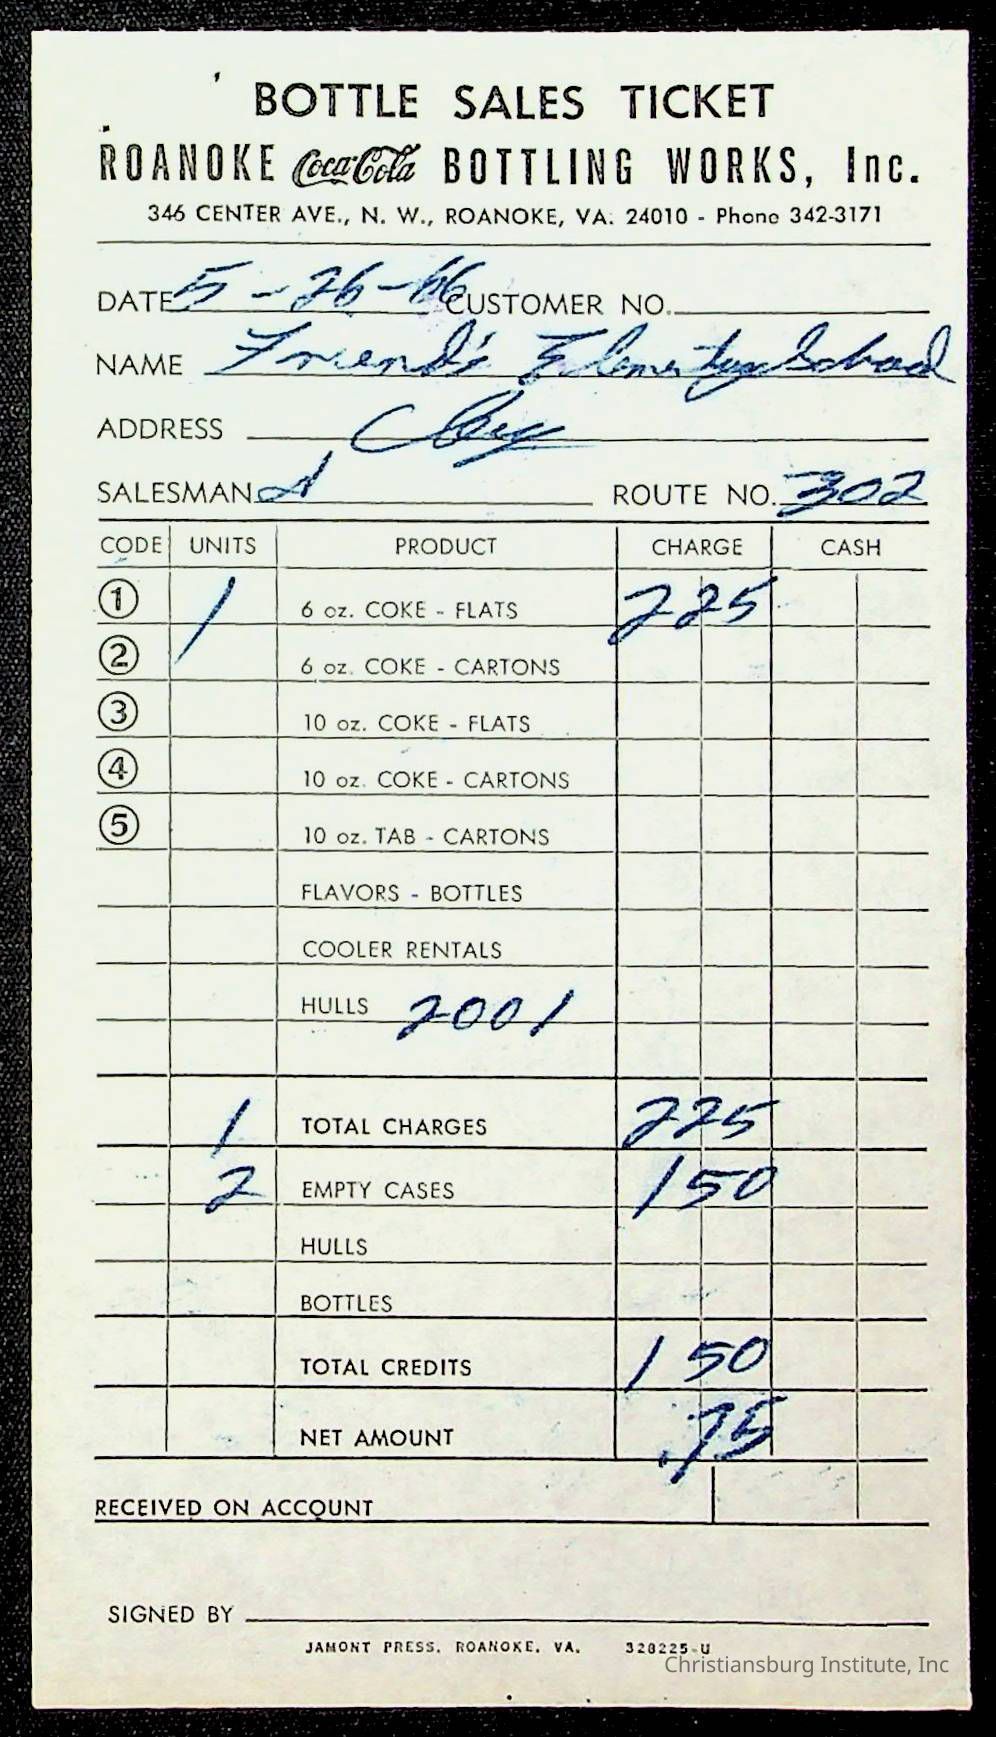 BOTTLE SALES TICKET
ROANOKE Coca-Cola BOTTLING WORKS, Inc.
346 CENTER AVE., N. W., ROANOKE, VA. 24010 - Phone 342-3171
DATE 5-26-66 CUSTOMER NO.
NAME Friend's Elementary School
ADDRESS
SALESMAN ROUTE NO. 302
CODE UNITS PRODUCT CHARGE CASH
1 1 6 oz. COKE - FLATS 2 25
2 6 oz. COKE - CARTONS
3 10 oz. COKE - FLATS
4 10 oz. COKE - CARTONS
5 10 oz. TAB - CARTONS
FLAVORS - BOTTLES
COOLER RENTALS
HULLS 2001
1 TOTAL CHARGES 2 25
2 EMPTY CASES 1 50
HULLS
BOTTLES
TOTAL CREDITS 1 50
NET AMOUNT .75
RECEIVED ON ACCOUNT
SIGNED BY
JAMONT PRESS, ROANOKE, VA. 328225-U
Christiansburg Institute, Inc